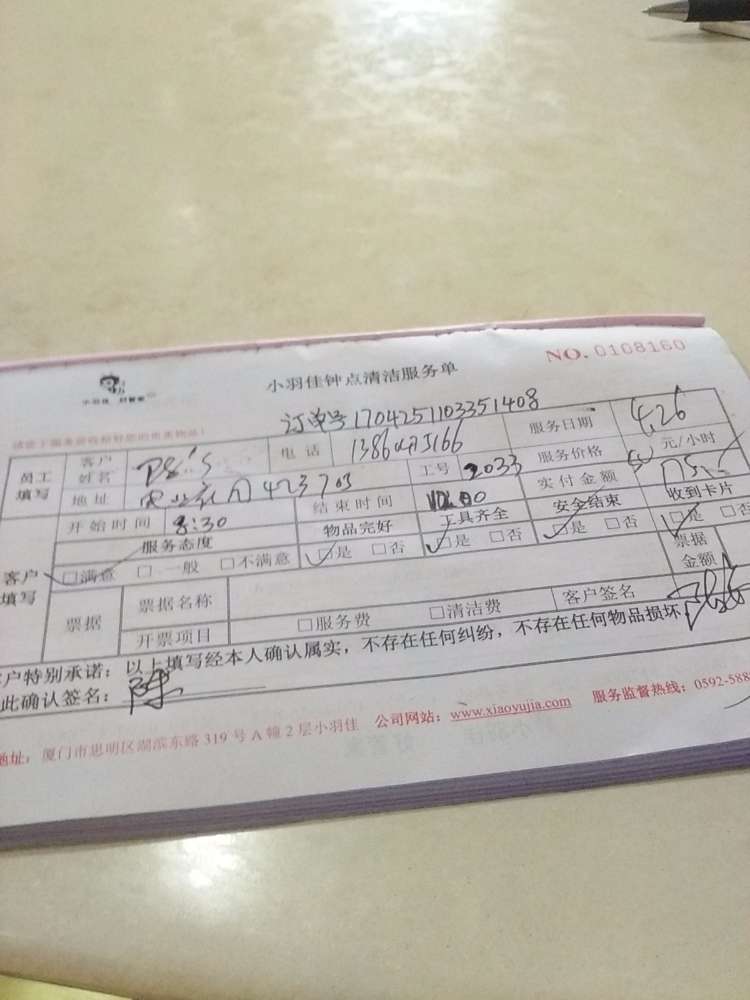 NO. 0108160
小羽佳 好管家
小羽佳钟点清洁服务单
订单号 1704251103351408
员工填写 客户姓名 电话 服务日期 4.26
地址 423 703 工号 2033 服务价格 元/小时
开始时间 8:30 结束时间 实付金额
客户填写 服务态度 物品完好 工具齐全 安全结束 收到卡片
□满意 □一般 □不满意 □是 □否 □是 □否 □是 □否 □是 □否
票据 票据名称 票据金额
开票项目 □服务费 □清洁费 客户签名
客户特别承诺：以上填写经本人确认属实，不存在任何纠纷，不存在任何物品损坏
此确认签名： 陈
地址：厦门市思明区湖滨东路 319 号 A 幢 2 层小羽佳 公司网站：www.xiaoyujia.com 服务监督热线：0592-588